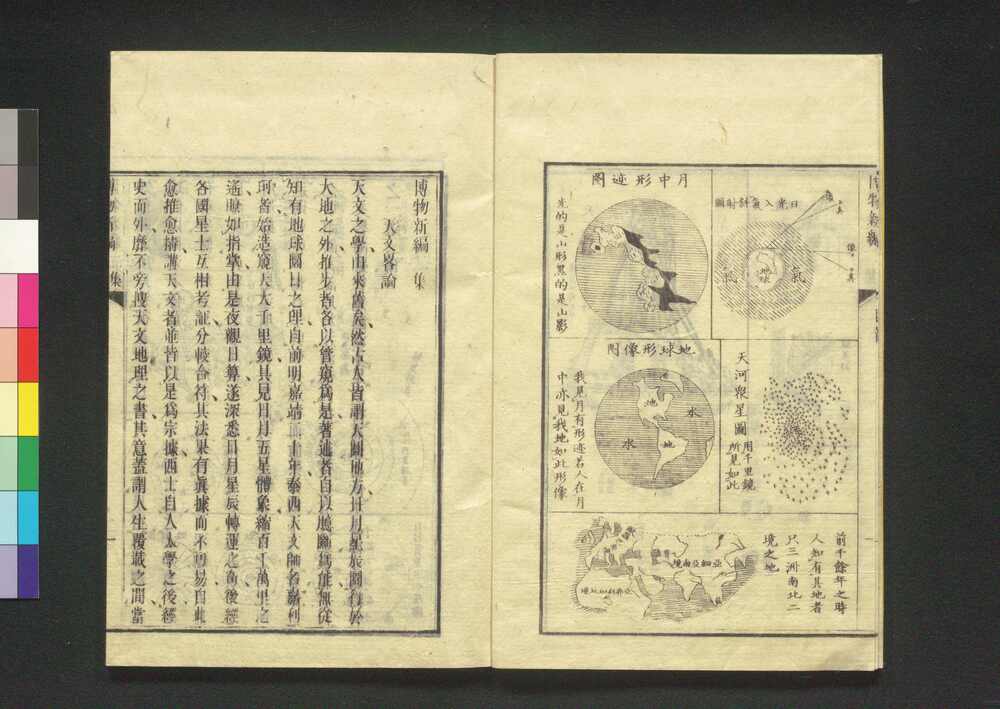 博物新編
日光入氣斜射圖
氣
地球
氣
月中形迹圖
光的是山形黑的是山影
天河眾星圖
用千里鏡
所見如此
地球形像圖
地
水
地
水
我見月有形迹若人在月
中亦見我地如此形像
前千餘年之時
人知有其地者
只三洲南北二
境之地
亞細亞南境
亞非利加北境
博物新編 集
天文畧論
天文之學由來舊矣然古人皆謂天圓地方日月星辰圜行於
大地之外推步者各以管窺為是著述者自以臆斷為能無從
知有地球圜日之理自前明嘉靖二十年泰西天文師名嘉利
珂者始造窺天大千里鏡具見日月五星體象縮百千萬里之
遙賾如指掌由是夜觀日算遂深悉日月星辰轉運之奧後經
各國星士互相考証分較合符其法果有真據而不可易自此
愈推愈精講天文者並皆以是為宗據西士自人人學之後經
史而外靡不旁搜天文地理之書其意蓋謂人生覆載之間當